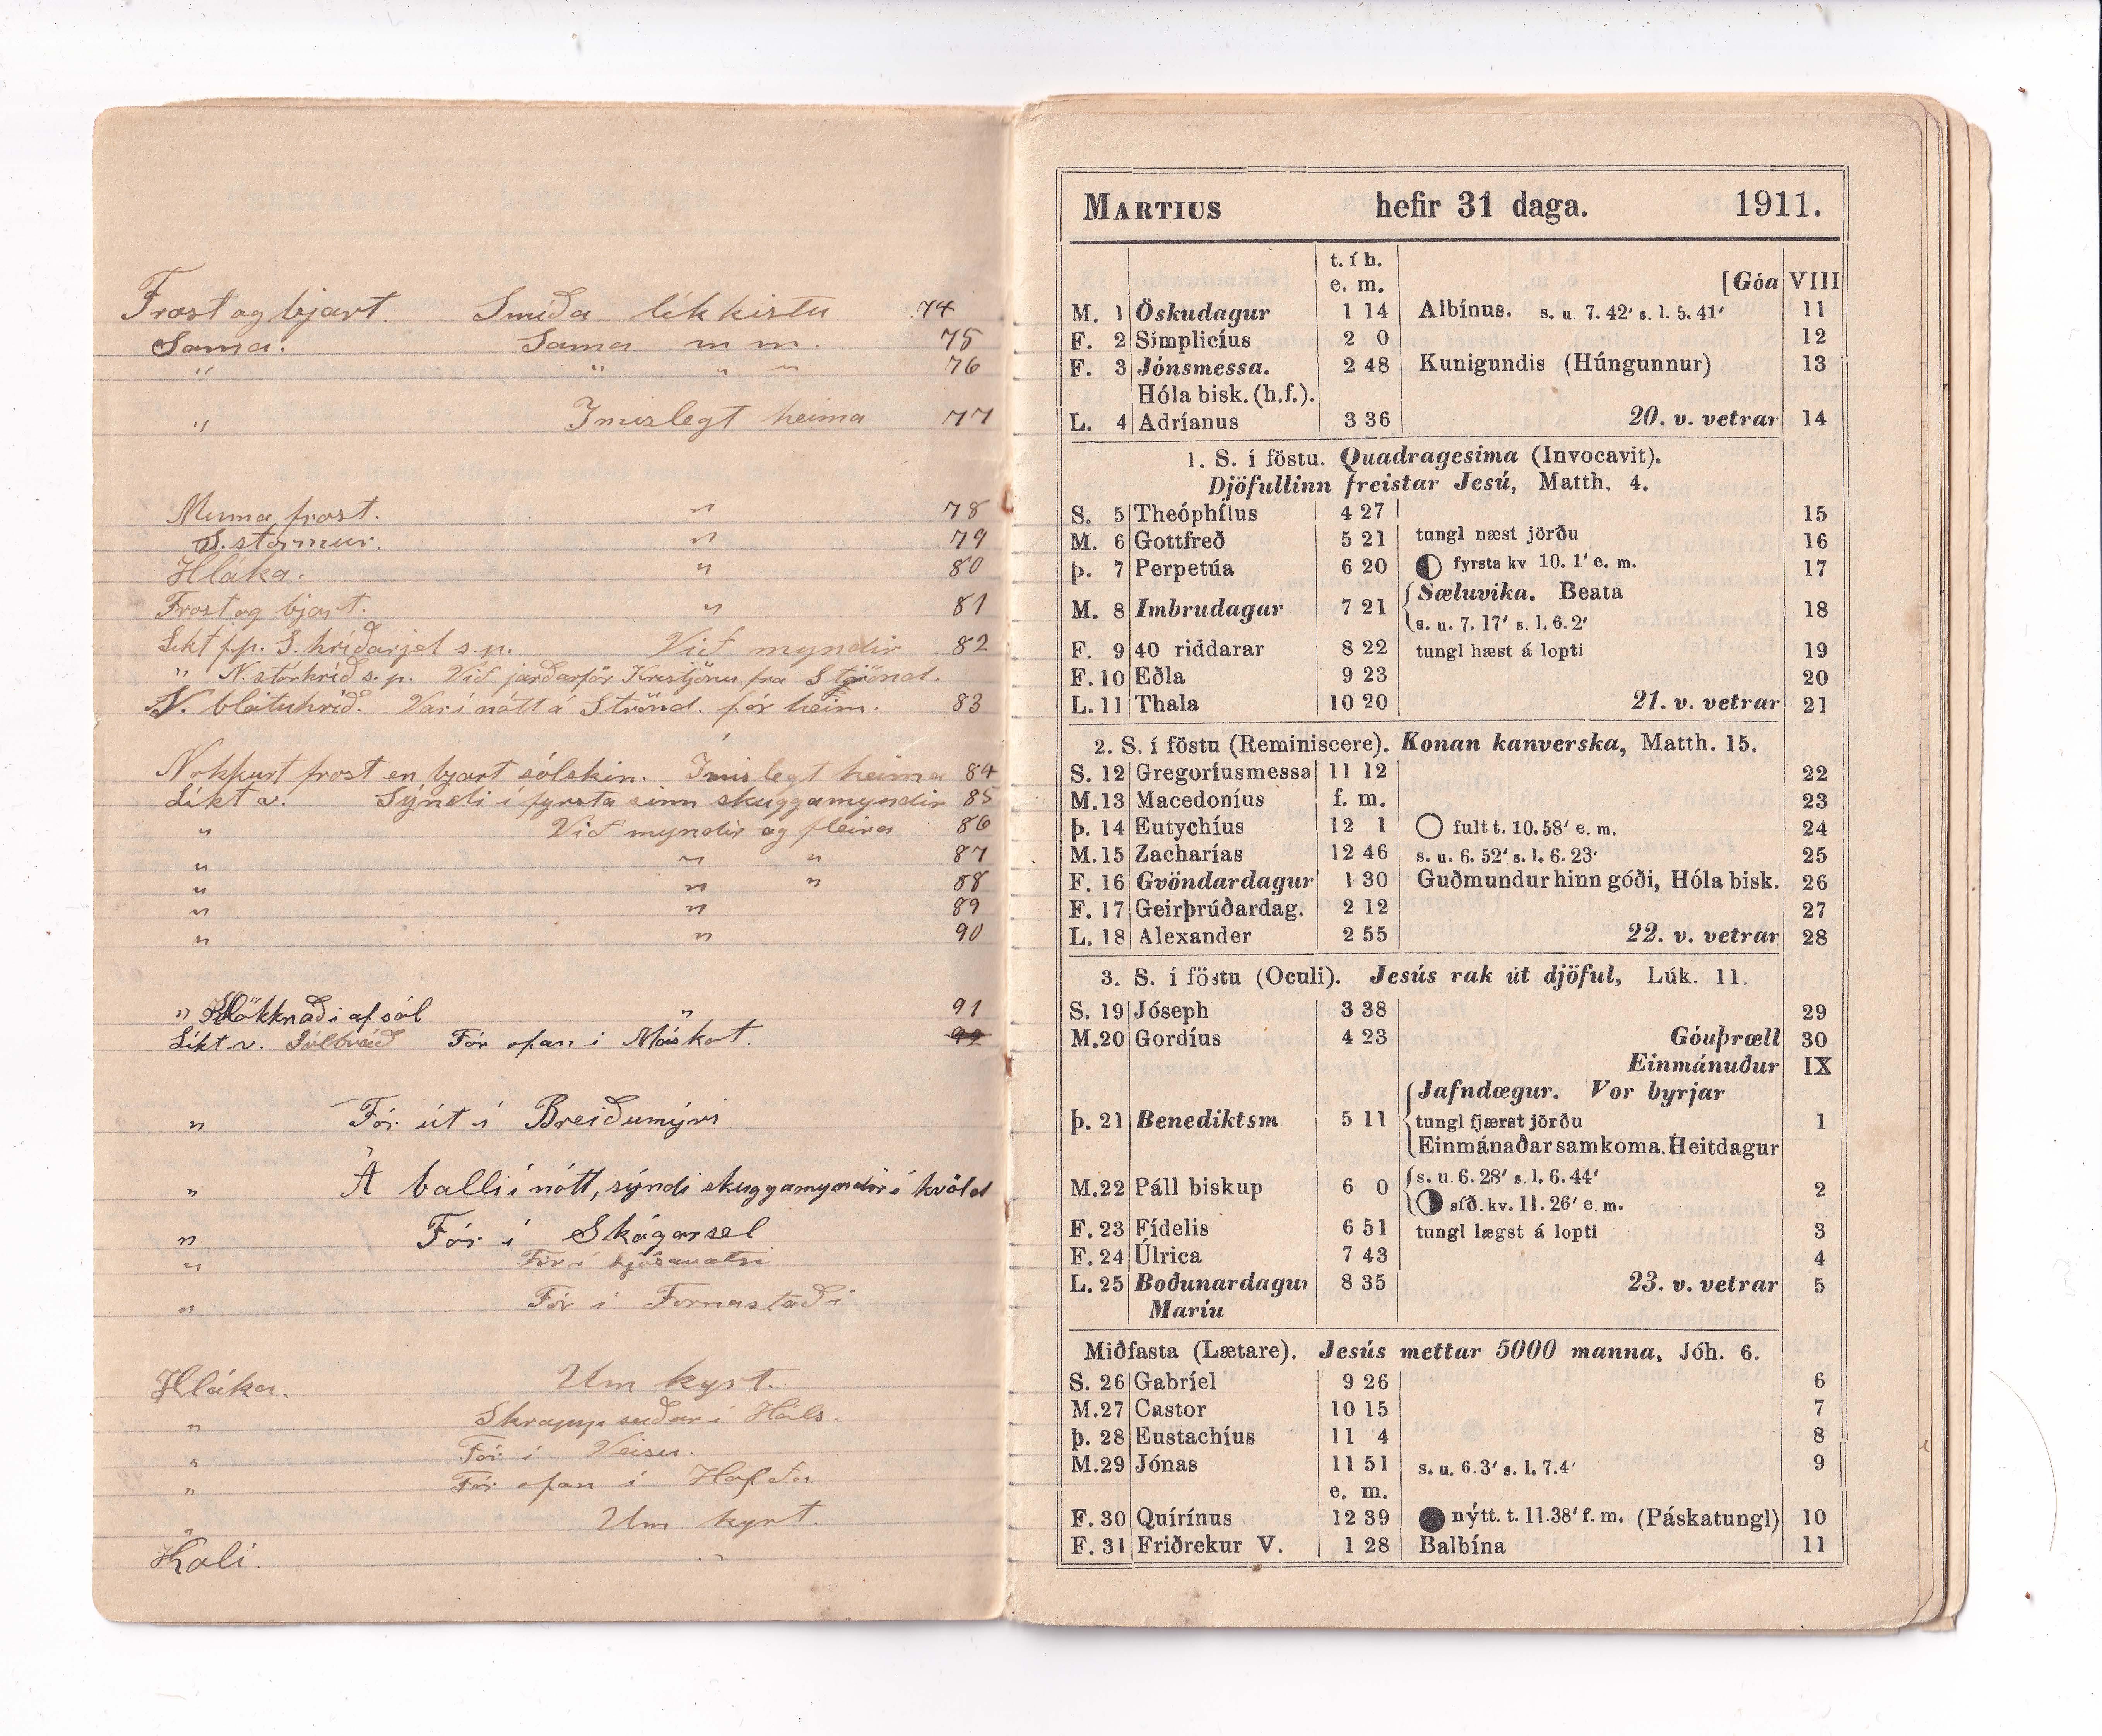 Frost og bjart. Smíða líkkistu 74
Sama. Sama m m. 75
" " " " 76
" Imislegt heima 77
Minna frost. " 78
S. stormur. " 79
Hláka. " 80
Frost og bjart. " 81
Líkt f.p. S. hríðarjel s.p. Við myndir 82
" N. stórhríð s.p. Við jarðarför Kristjönu frá Strönd.
N. blátuhríð. Var í nótt á Strönd. fór heim. 83
Nokkurt frost en bjart sólskin. Ímislegt heima 84
Líkt v. Sýndi í fyrsta sinn skuggamyndir 85
" Við myndir og fleira 86
" " " 87
" " " 88
" " 89
" " 90
" Klökknaði af sól " 91
Líkt v. Sólbráð Fór ofan í Móskot. 92
" Fór út í Breiðumýri
" Á balli í nótt, sýndi skuggamyndir í kvöld
" Fór í Skógarsel
" Fór í Ljósavatn
" Fór í Fornastaði
Hláka. Um kyrt.
" Skrapp suður í Háls.
" Fór í Veisu.
" Fór ofan í Höfða
" Um kyrt.
Kali. "
MARTIUS hefir 31 daga. 1911.
t. í h.
e. m. [Góa VIII
M. 1 Öskudagur 1 14 Albínus. s. u. 7. 42' s. l. 5. 41' 11
F. 2 Simplicíus 2 0 12
F. 3 Jónsmessa. 2 48 Kunigundis (Húngunnur) 13
Hóla bisk. (h.f.).
L. 4 Adríanus 3 36 20. v. vetrar 14
1. S. í föstu. Quadragesima (Invocavit).
Djöfullinn freistar Jesú, Matth. 4.
S. 5 Theóphílus 4 27 15
M. 6 Gottfreð 5 21 tungl næst jörðu 16
Þ. 7 Perpetúa 6 20 fyrsta kv 10. 1' e. m. 17
M. 8 Imbrudagar 7 21 Sæluvika. Beata 18
s. u. 7. 17' s. l. 6. 2'
F. 9 40 riddarar 8 22 tungl hæst á lopti 19
F. 10 Eðla 9 23 20
L. 11 Thala 10 20 21. v. vetrar 21
2. S. í föstu (Reminiscere). Konan kanverska, Matth. 15.
S. 12 Gregoríusmessa 11 12 22
M. 13 Macedoníus f. m. 23
Þ. 14 Eutychíus 12 1 fullt t. 10. 58' e. m. 24
M. 15 Zacharías 12 46 s. u. 6. 52' s. l. 6. 23' 25
F. 16 Gvöndardagur 1 30 Guðmundur hinn góði, Hóla bisk. 26
F. 17 Geirþrúðardag. 2 12 27
L. 18 Alexander 2 55 22. v. vetrar 28
3. S. í föstu (Oculi). Jesús rak út djöful, Lúk. 11.
S. 19 Jóseph 3 38 29
M. 20 Gordíus 4 23 Góuþræll 30
Einmánuður IX
Jafndægur. Vor byrjar
Þ. 21 Benediktsm 5 11 tungl fjærst jörðu 1
Einmánaðarsamkoma. Heitdagur
M. 22 Páll biskup 6 0 s. u. 6. 28' s. l. 6. 44' 2
síð. kv. 11. 26' e. m.
F. 23 Fídelis 6 51 tungl lægst á lopti 3
F. 24 Úlrica 7 43 4
L. 25 Boðunardagur 8 35 23. v. vetrar 5
Maríu
Miðfasta (Lætare). Jesús mettar 5000 manna, Jóh. 6.
S. 26 Gabríel 9 26 6
M. 27 Castor 10 15 7
Þ. 28 Eustachíus 11 4 8
M. 29 Jónas 11 51 s. u. 6. 3' s. l. 7. 4' 9
e. m.
F. 30 Quírínus 12 39 nýtt. t. 11.38' f. m. (Páskatungl) 10
F. 31 Friðrekur V. 1 28 Balbína 11